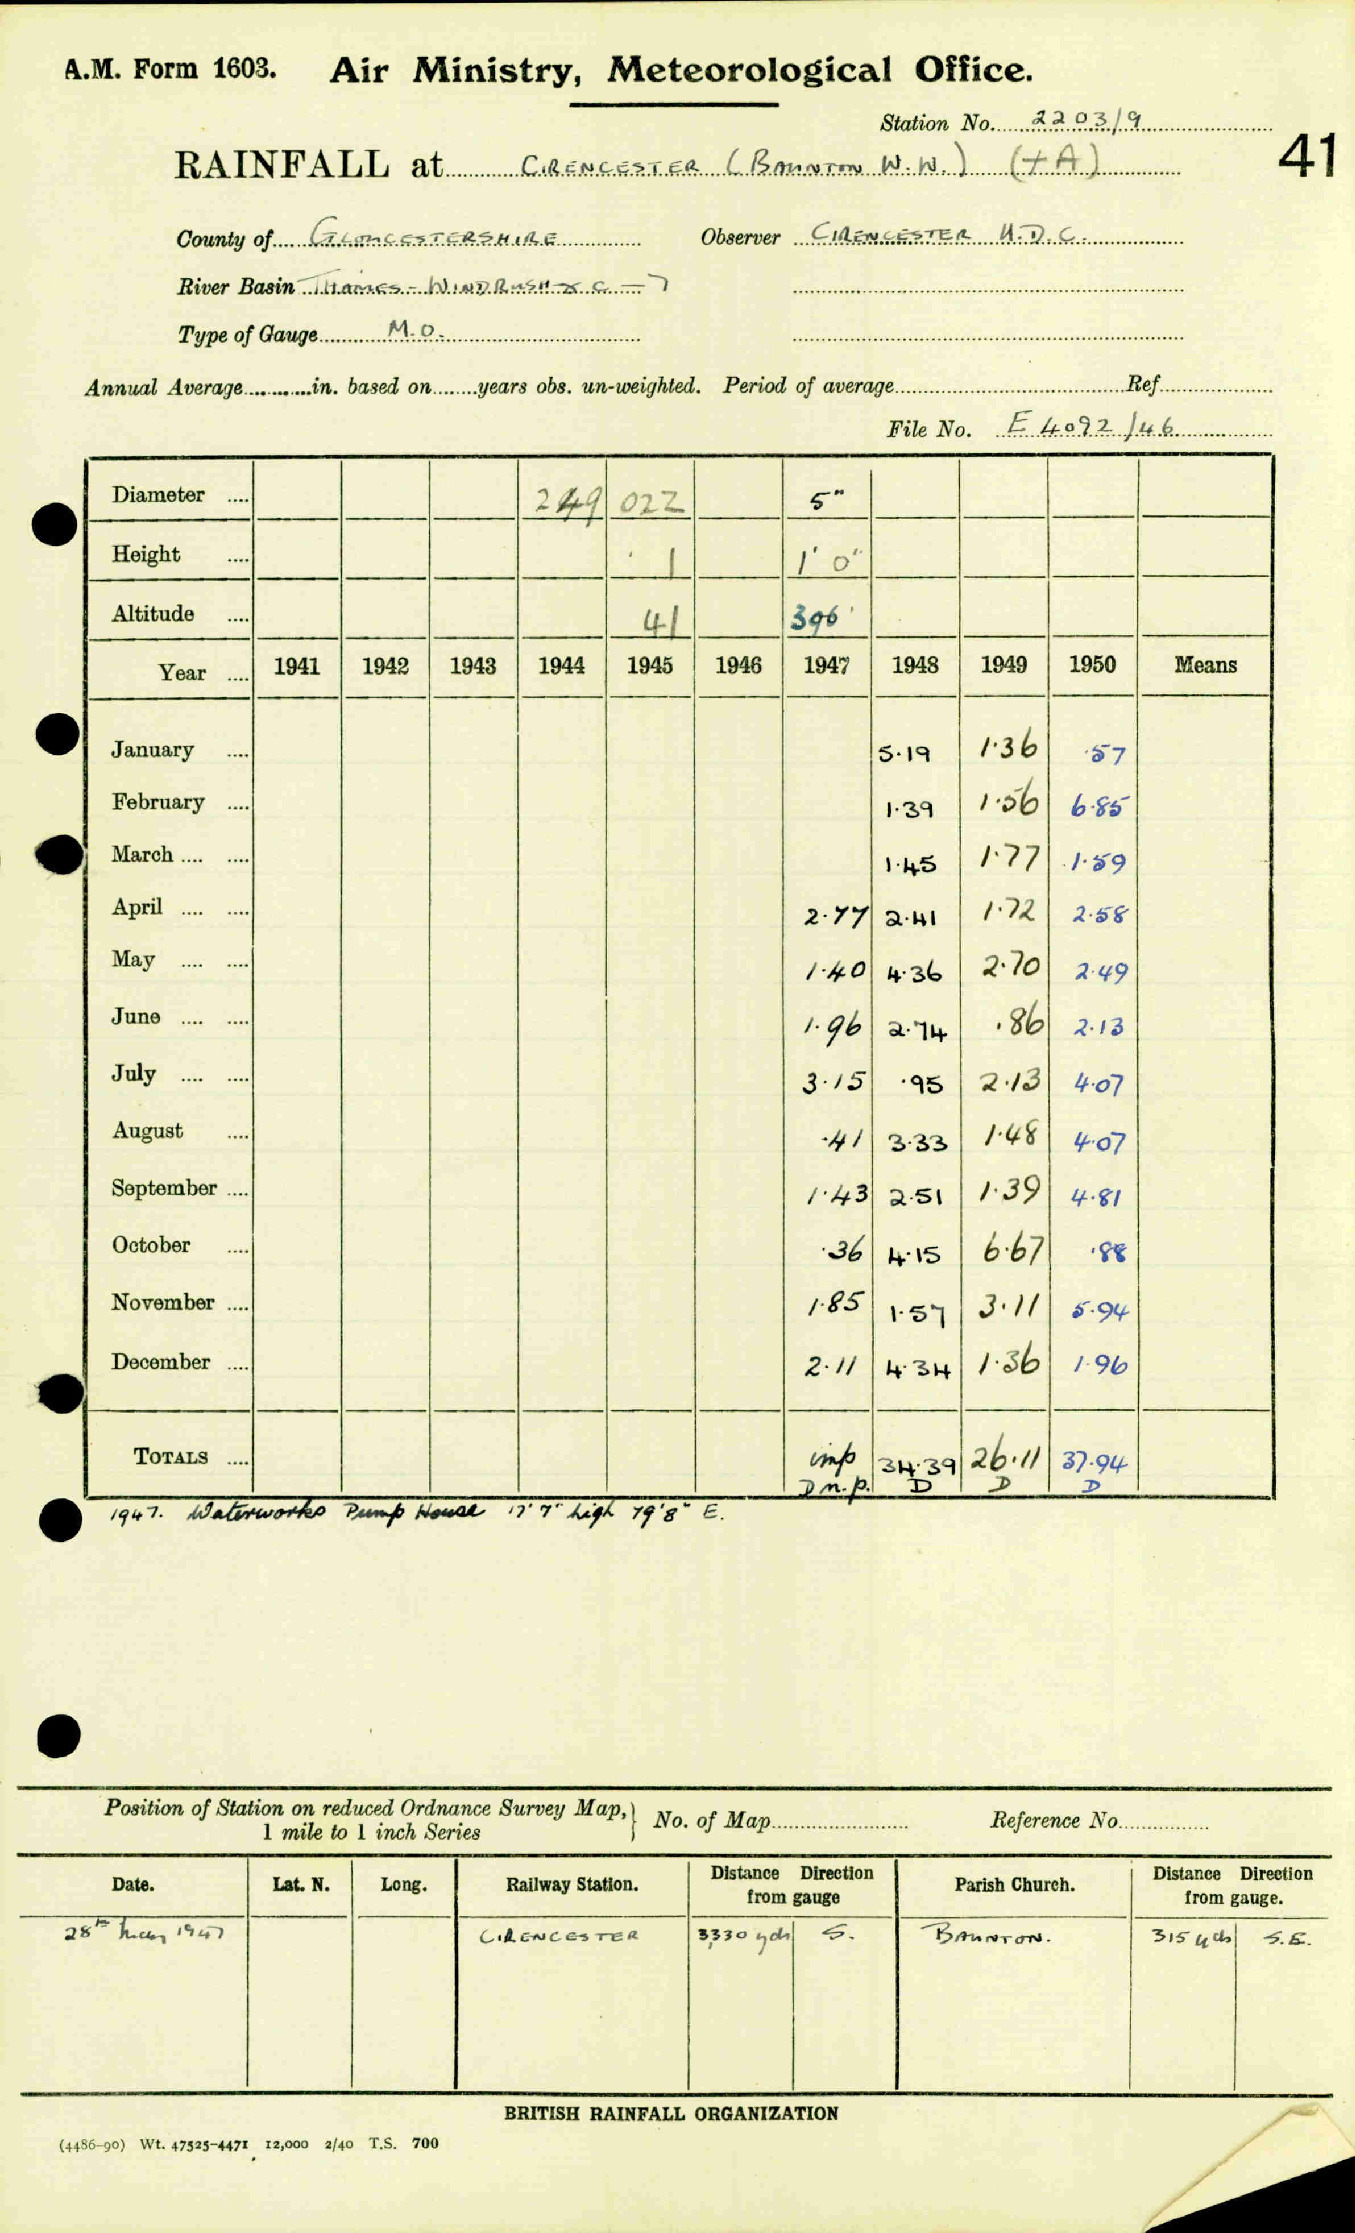 A.M. Form 1603. Air Ministry, Meteorological Office.
Station No. 2203/9
41
RAINFALL at CIRENCESTER (BAUNTON W.W.) (+A)
County of GLOUCESTERSHIRE Observer CIRENCESTER U.D.C.
River Basin THAMES - WINDRUSH & C - 7
Type of Gauge M.O.
Annual Average in. based on years obs. un-weighted. Period of average Ref.
File No. E 4092/46
Diameter 249 022 5"
Height 1 1' 0"
Altitude 41 396'
Year 1941 1942 1943 1944 1945 1946 1947 1948 1949 1950 Means
January 5.19 1.36 .57
February 1.39 1.56 6.85
March 1.45 1.77 1.59
April 2.77 2.41 1.72 2.58
May 1.40 4.36 2.70 2.49
June 1.96 2.74 .86 2.13
July 3.15 .95 2.13 4.07
August .41 3.33 1.48 4.07
September 1.43 2.51 1.39 4.81
October .36 4.15 6.67 .88
November 1.85 1.57 3.11 5.94
December 2.11 4.34 1.36 1.96
TOTALS imp 34.39 26.11 37.94
D n.p. D D D
1947. Waterworks Pump House 17'7" high 79'8" E.
Position of Station on reduced Ordnance Survey Map, 1 mile to 1 inch Series } No. of Map Reference No.
Date. Lat. N. Long. Railway Station. Distance Direction from gauge Parish Church. Distance Direction from gauge.
28th May 1947 CIRENCESTER 3,330 yds S. BAUNTON. 315 yds S.E.
BRITISH RAINFALL ORGANIZATION
(4486-90) Wt. 47525-4471 12,000 2/40 T.S. 700